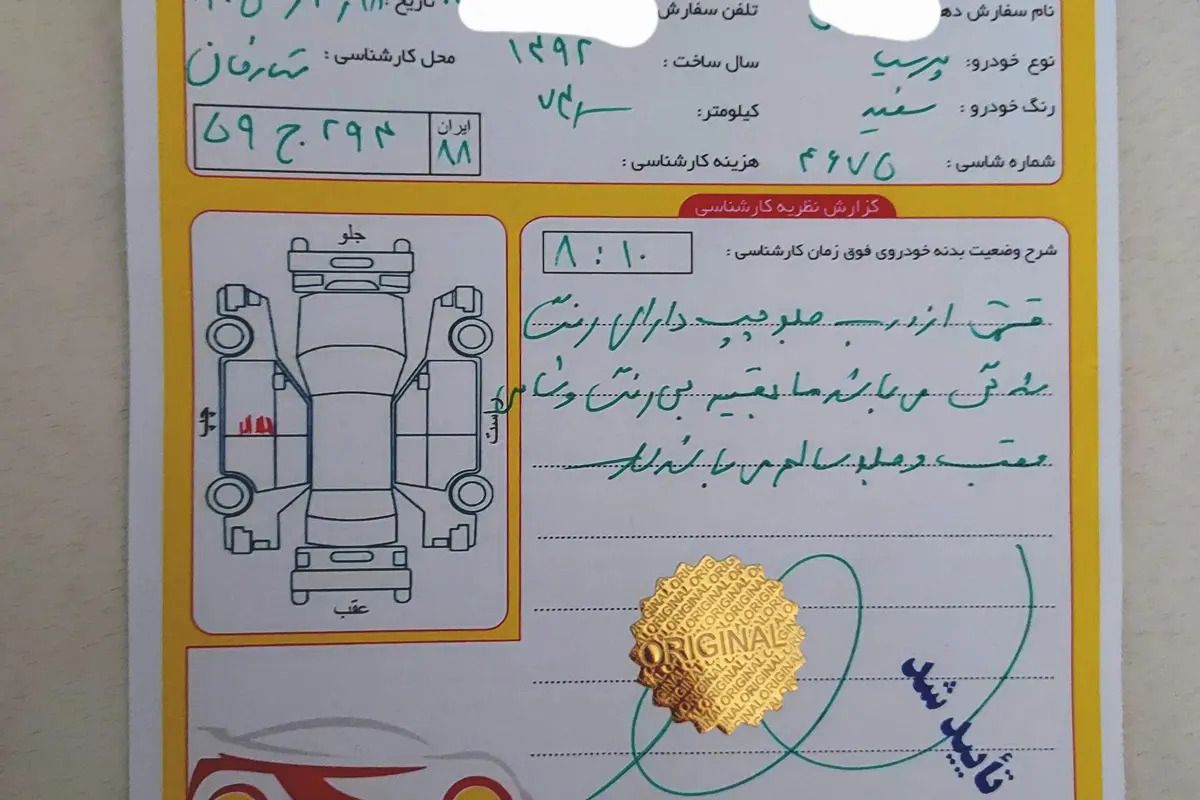 نام سفارش ده
تلفن سفارش
تاریخ:
نوع خودرو: پرسیا
سال ساخت: ۱۳۹۲
محل کارشناسی:
رنگ خودرو: سفید
کیلومتر:
ایران ۸۸
۲۹۴ ج ۵۹
شماره شاسی: ۴۶۷۵
هزینه کارشناسی:
گزارش نظریه کارشناسی
شرح وضعیت بدنه خودروی فوق زمان کارشناسی: ۸:۱۰
قسمتی از درب جلو چپ دارای رنگ
می باشد مابقیه بی رنگ و شاسی
عقب و جلو سالم می باشد
جلو
چپ
راست
عقب
ORIGINAL
تأیید شد